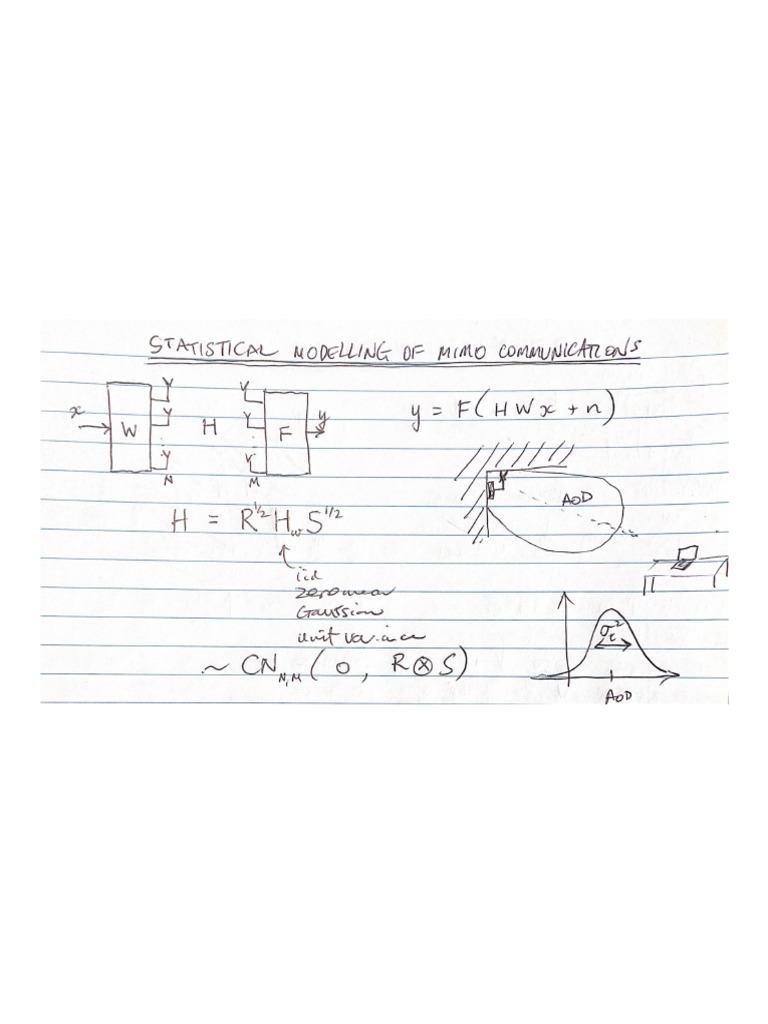 STATISTICAL MODELLING OF MIMO COMMUNICATIONS
x W N H M F y
y = F(HWx + n)
AOD
H = R^{1/2} H_w S^{1/2}
iid
zero mean
Gaussian
unit variance
~ CN_{N,M}(0, R⊗S)
σ_t^2
AOD